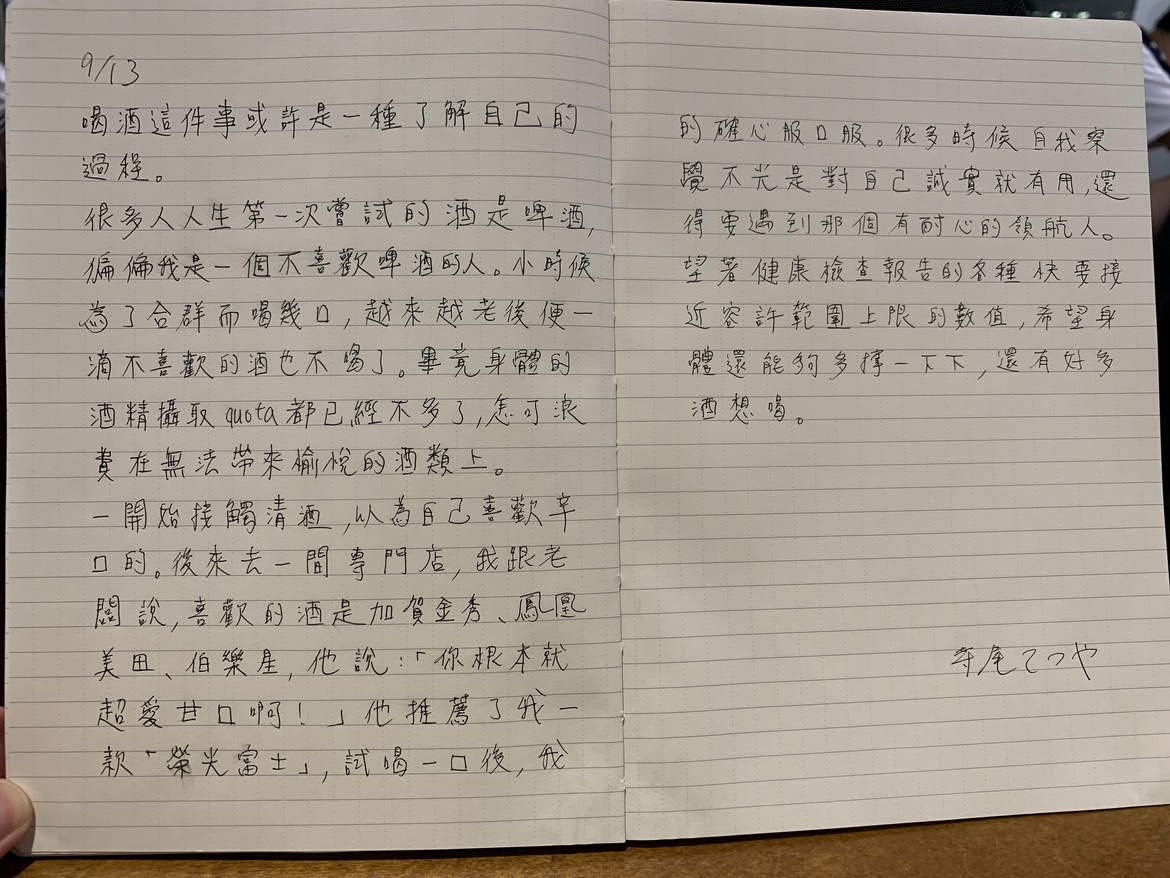 9/13
喝酒這件事或許是一種了解自己的
過程。
很多人人生第一次嘗試的酒是啤酒,
偏偏我是一個不喜歡啤酒的人。小時候
為了合群而喝幾口,越來越老後便一
滴不喜歡的酒也不喝了。畢竟身體的
酒精攝取quota都已經不多了,怎可浪
費在無法帶來愉悅的酒類上。
一開始接觸清酒,以為自己喜歡辛
口的。後來去一間專門店,我跟老
闆說,喜歡的酒是加賀金秀、鳳凰
美田、伯樂星,他說:「你根本就
超愛甘口啊!」他推薦了我一
款「榮光富士」,試喝一口後,我
的確心服口服。很多時候自我察
覺不光是對自己誠實就有用,還
得要遇到那個有耐心的領航人。
望著健康檢查報告的各種快要接
近容許範圍上限的數值,希望身
體還能夠多撐一下下,還有好多
酒想喝。
寺尾てつや